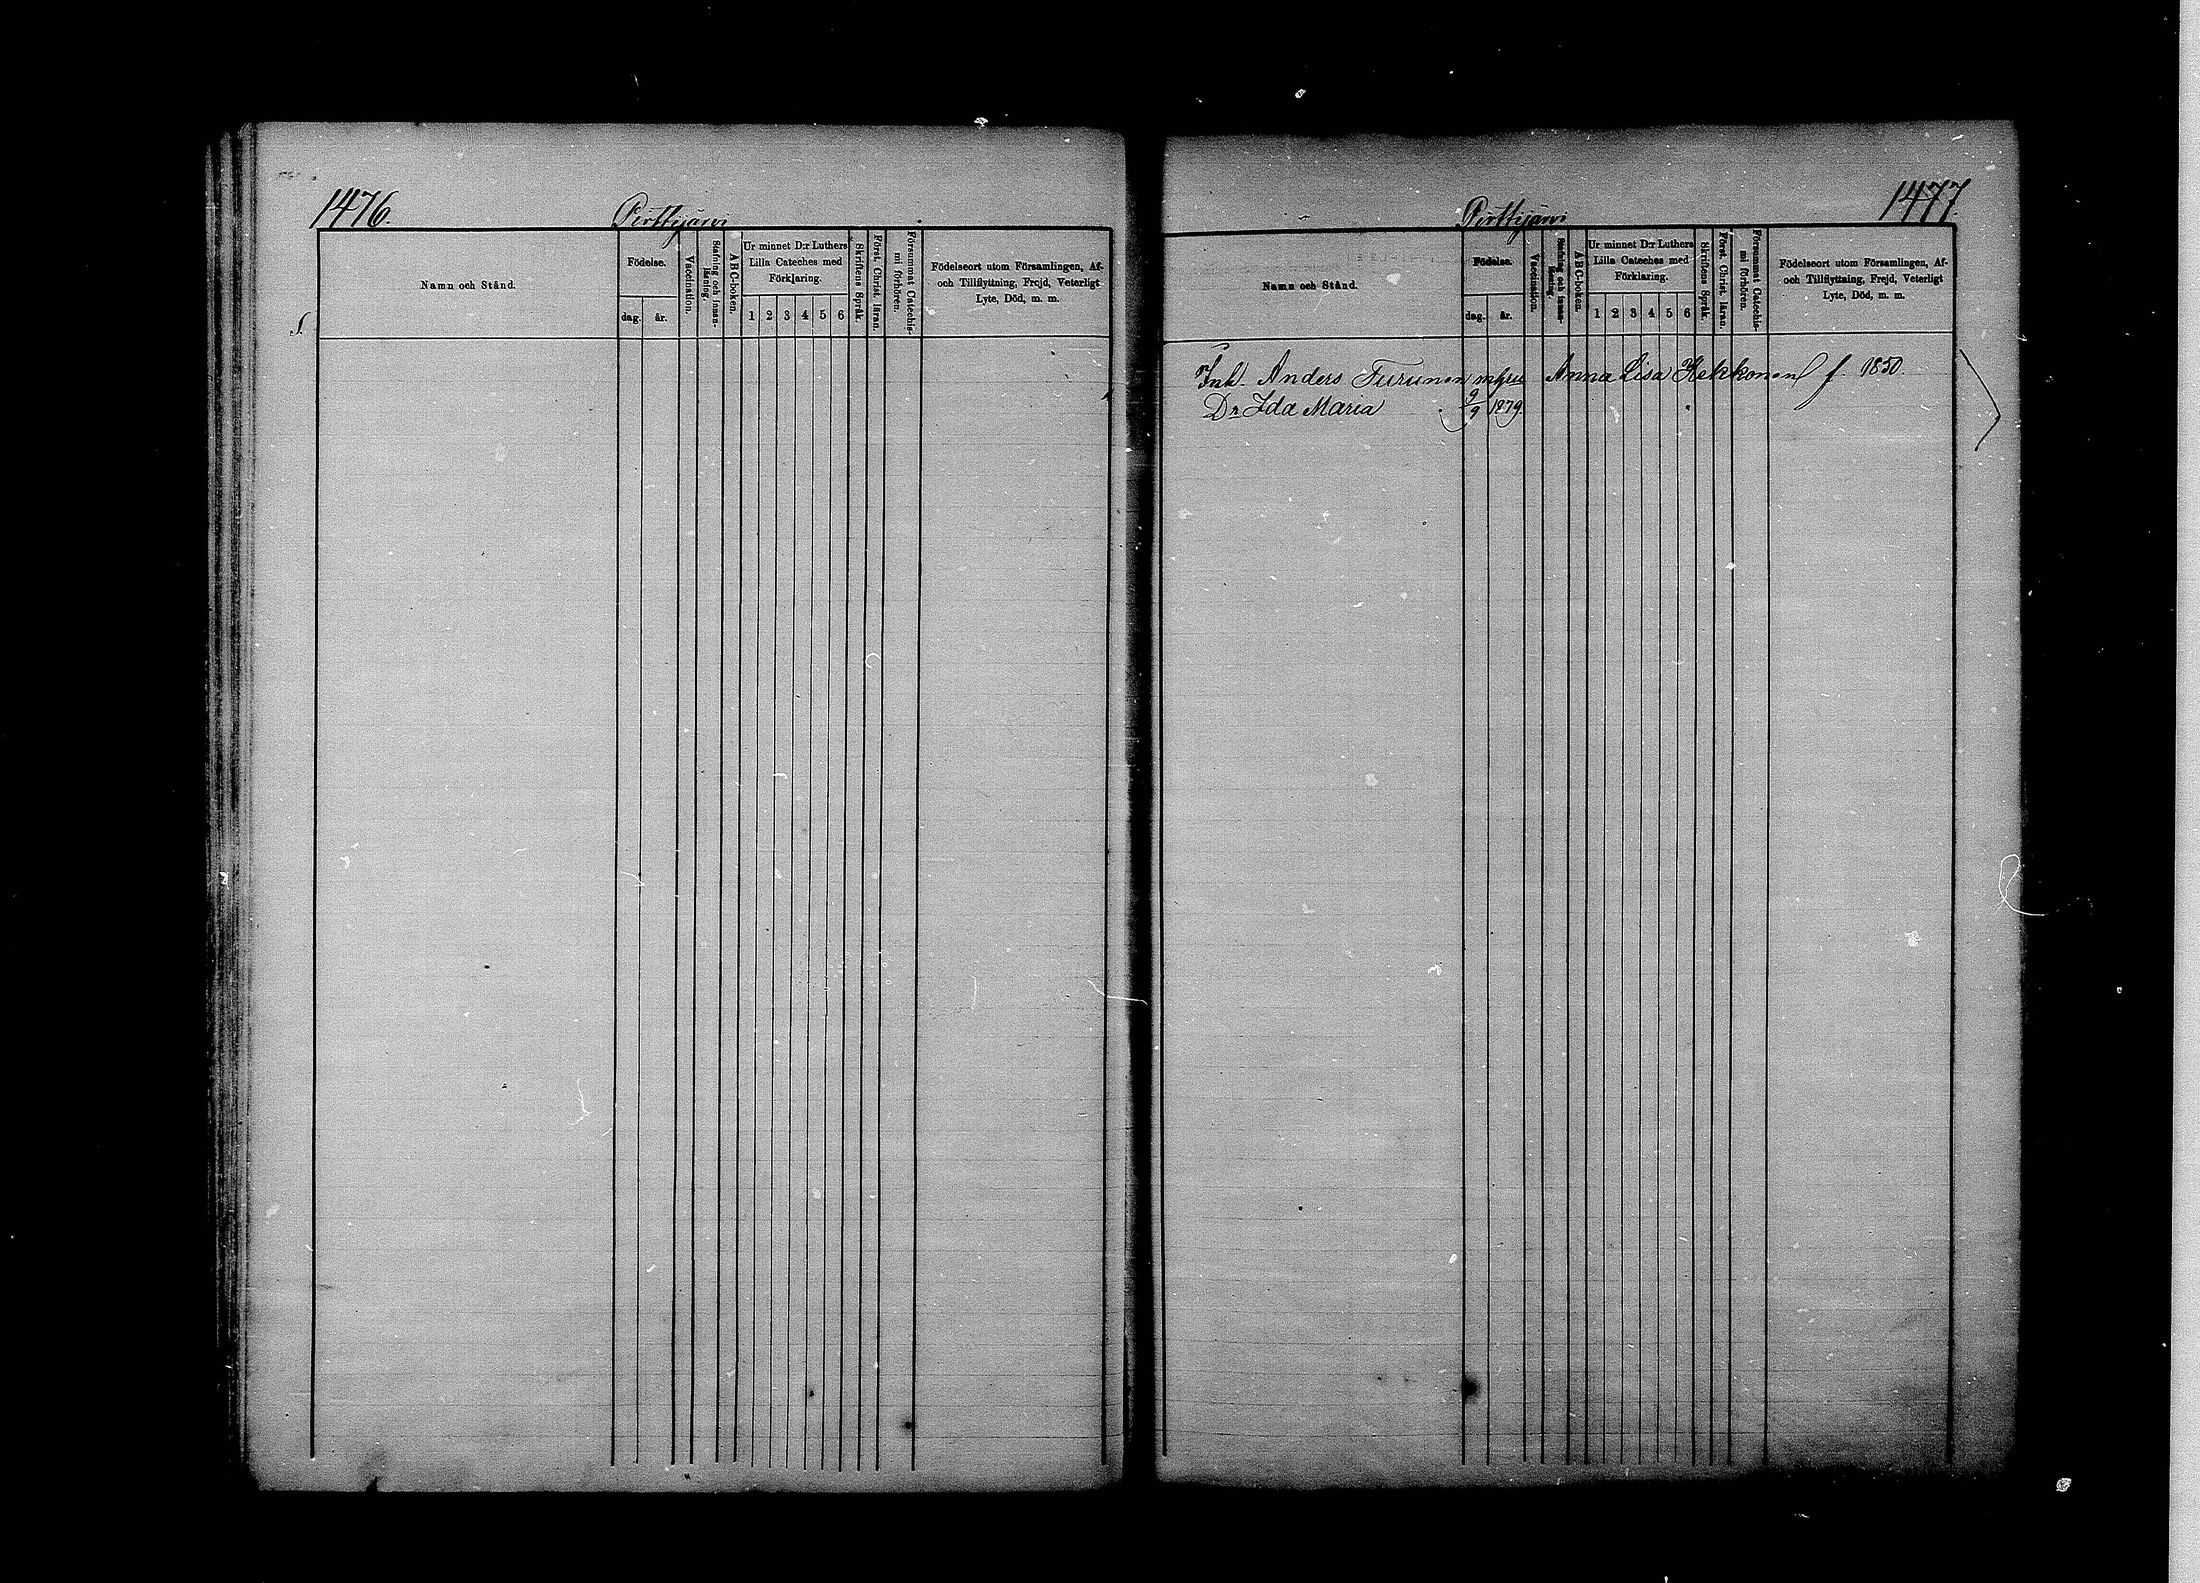 1476.
Perttijärvi
Namn och Stånd.
Födelse.
dag.
år.
Vaccination.
Stafning och innan-
läsning.
ABC-boken.
Ur minnet D:r Luthers
Lilla Cateches med
Förklaring.
1 2 3 4 5 6
Skriftens Språk.
Först. Christ. läran.
Försummat Catechis-
mi förhören.
Födelseort utom Församlingen, Af-
och Tillflyttning, Frejd, Veterligt
Lyte, Död, m. m.
1477.
Perttijärvi
Namn och Stånd.
Födelse.
dag.
år.
Vaccination.
Stafning och innan-
läsning.
ABC-boken.
Ur minnet D:r Luthers
Lilla Cateches med
Förklaring.
1 2 3 4 5 6
Skriftens Språk.
Först. Christ. läran.
Försummat Catechis-
mi förhören.
Födelseort utom Församlingen, Af-
och Tillflyttning, Frejd, Veterligt
Lyte, Död, m. m.
Inh. Anders Turunen m hru Anna Lisa Kekkonen f 1850
Dr Ida Maria 9/9 1879